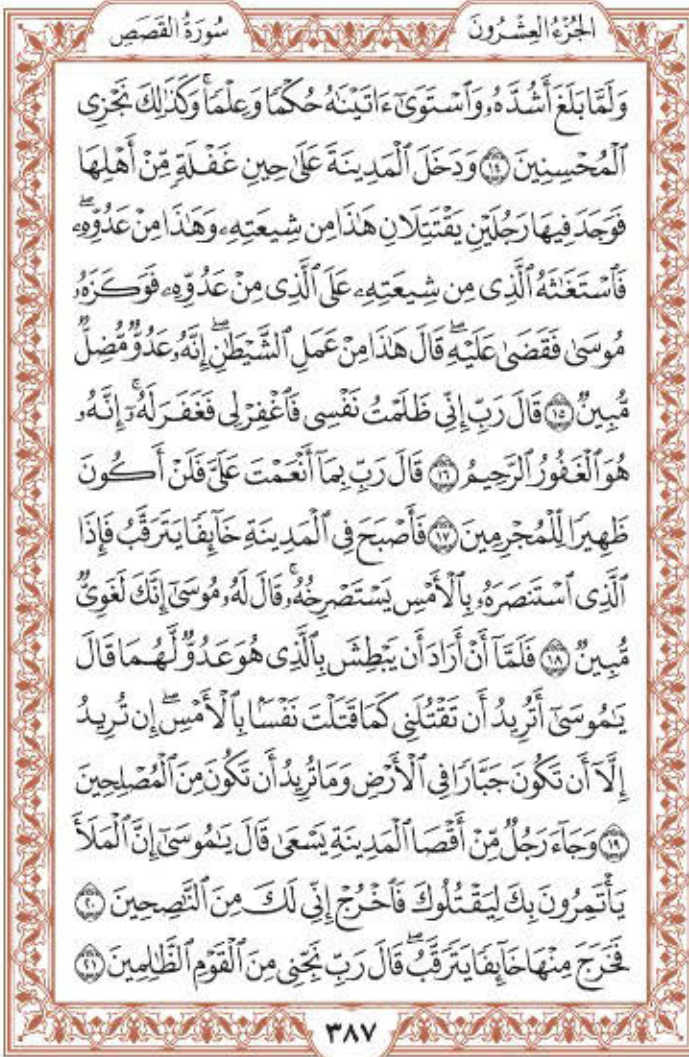 سُورَةُ القَصَصِ الجُزْءُ العِشْرُونَ
وَلَمَّا بَلَغَ أَشُدَّهُۥ وَٱسْتَوَىٰٓ ءَاتَيْنَٰهُ حُكْمًا وَعِلْمًا ۚ وَكَذَٰلِكَ نَجْزِى
ٱلْمُحْسِنِينَ ١٤ وَدَخَلَ ٱلْمَدِينَةَ عَلَىٰ حِينِ غَفْلَةٍ مِّنْ أَهْلِهَا
فَوَجَدَ فِيهَا رَجُلَيْنِ يَقْتَتِلَانِ هَٰذَا مِن شِيعَتِهِۦ وَهَٰذَا مِنْ عَدُوِّهِۦ ۖ
فَٱسْتَغَٰثَهُ ٱلَّذِى مِن شِيعَتِهِۦ عَلَى ٱلَّذِى مِنْ عَدُوِّهِۦ فَوَكَزَهُۥ
مُوسَىٰ فَقَضَىٰ عَلَيْهِ ۖ قَالَ هَٰذَا مِنْ عَمَلِ ٱلشَّيْطَٰنِ ۖ إِنَّهُۥ عَدُوٌّ مُّضِلٌّ
مُّبِينٌ ١٥ قَالَ رَبِّ إِنِّى ظَلَمْتُ نَفْسِى فَٱغْفِرْ لِى فَغَفَرَ لَهُۥٓ ۚ إِنَّهُۥ
هُوَ ٱلْغَفُورُ ٱلرَّحِيمُ ١٦ قَالَ رَبِّ بِمَآ أَنْعَمْتَ عَلَىَّ فَلَنْ أَكُونَ
ظَهِيرًا لِّلْمُجْرِمِينَ ١٧ فَأَصْبَحَ فِى ٱلْمَدِينَةِ خَآئِفًا يَتَرَقَّبُ فَإِذَا
ٱلَّذِى ٱسْتَنصَرَهُۥ بِٱلْأَمْسِ يَسْتَصْرِخُهُۥ ۚ قَالَ لَهُۥ مُوسَىٰٓ إِنَّكَ لَغَوِىٌّ
مُّبِينٌ ١٨ فَلَمَّآ أَنْ أَرَادَ أَن يَبْطِشَ بِٱلَّذِى هُوَ عَدُوٌّ لَّهُمَا قَالَ
يَٰمُوسَىٰٓ أَتُرِيدُ أَن تَقْتُلَنِى كَمَا قَتَلْتَ نَفْسًۢا بِٱلْأَمْسِ ۖ إِن تُرِيدُ
إِلَّآ أَن تَكُونَ جَبَّارًا فِى ٱلْأَرْضِ وَمَا تُرِيدُ أَن تَكُونَ مِنَ ٱلْمُصْلِحِينَ
١٩ وَجَآءَ رَجُلٌ مِّنْ أَقْصَا ٱلْمَدِينَةِ يَسْعَىٰ قَالَ يَٰمُوسَىٰٓ إِنَّ ٱلْمَلَأَ
يَأْتَمِرُونَ بِكَ لِيَقْتُلُوكَ فَٱخْرُجْ إِنِّى لَكَ مِنَ ٱلنَّٰصِحِينَ ٢٠
فَخَرَجَ مِنْهَا خَآئِفًا يَتَرَقَّبُ ۖ قَالَ رَبِّ نَجِّنِى مِنَ ٱلْقَوْمِ ٱلظَّٰلِمِينَ ٢١
٣٨٧